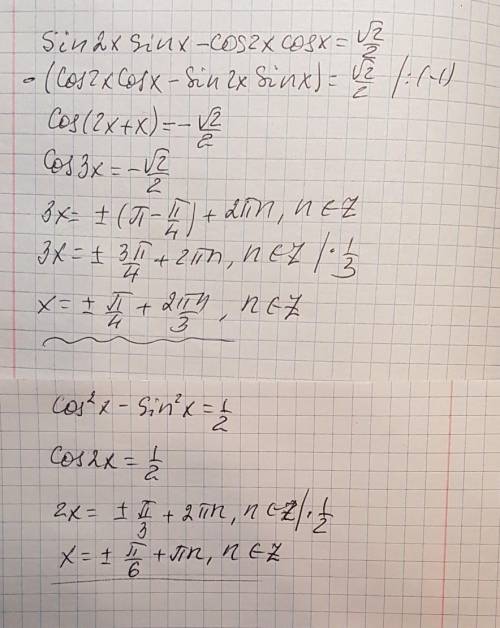 Sin2x Sinx - Cos2x Cosx = √2/2
- (Cos2x Cosx - Sin2x Sinx) = √2/2 /:(-1)
Cos(2x+x) = - √2/2
Cos3x = - √2/2
3x = ± (π - π/4) + 2πn, n ∈ Z
3x = ± 3π/4 + 2πn, n ∈ Z /· 1/3
x = ± π/4 + 2πn/3, n ∈ Z
Cos²x - Sin²x = 1/2
Cos2x = 1/2
2x = ± π/3 + 2πn, n ∈ Z /· 1/2
x = ± π/6 + πn, n ∈ Z